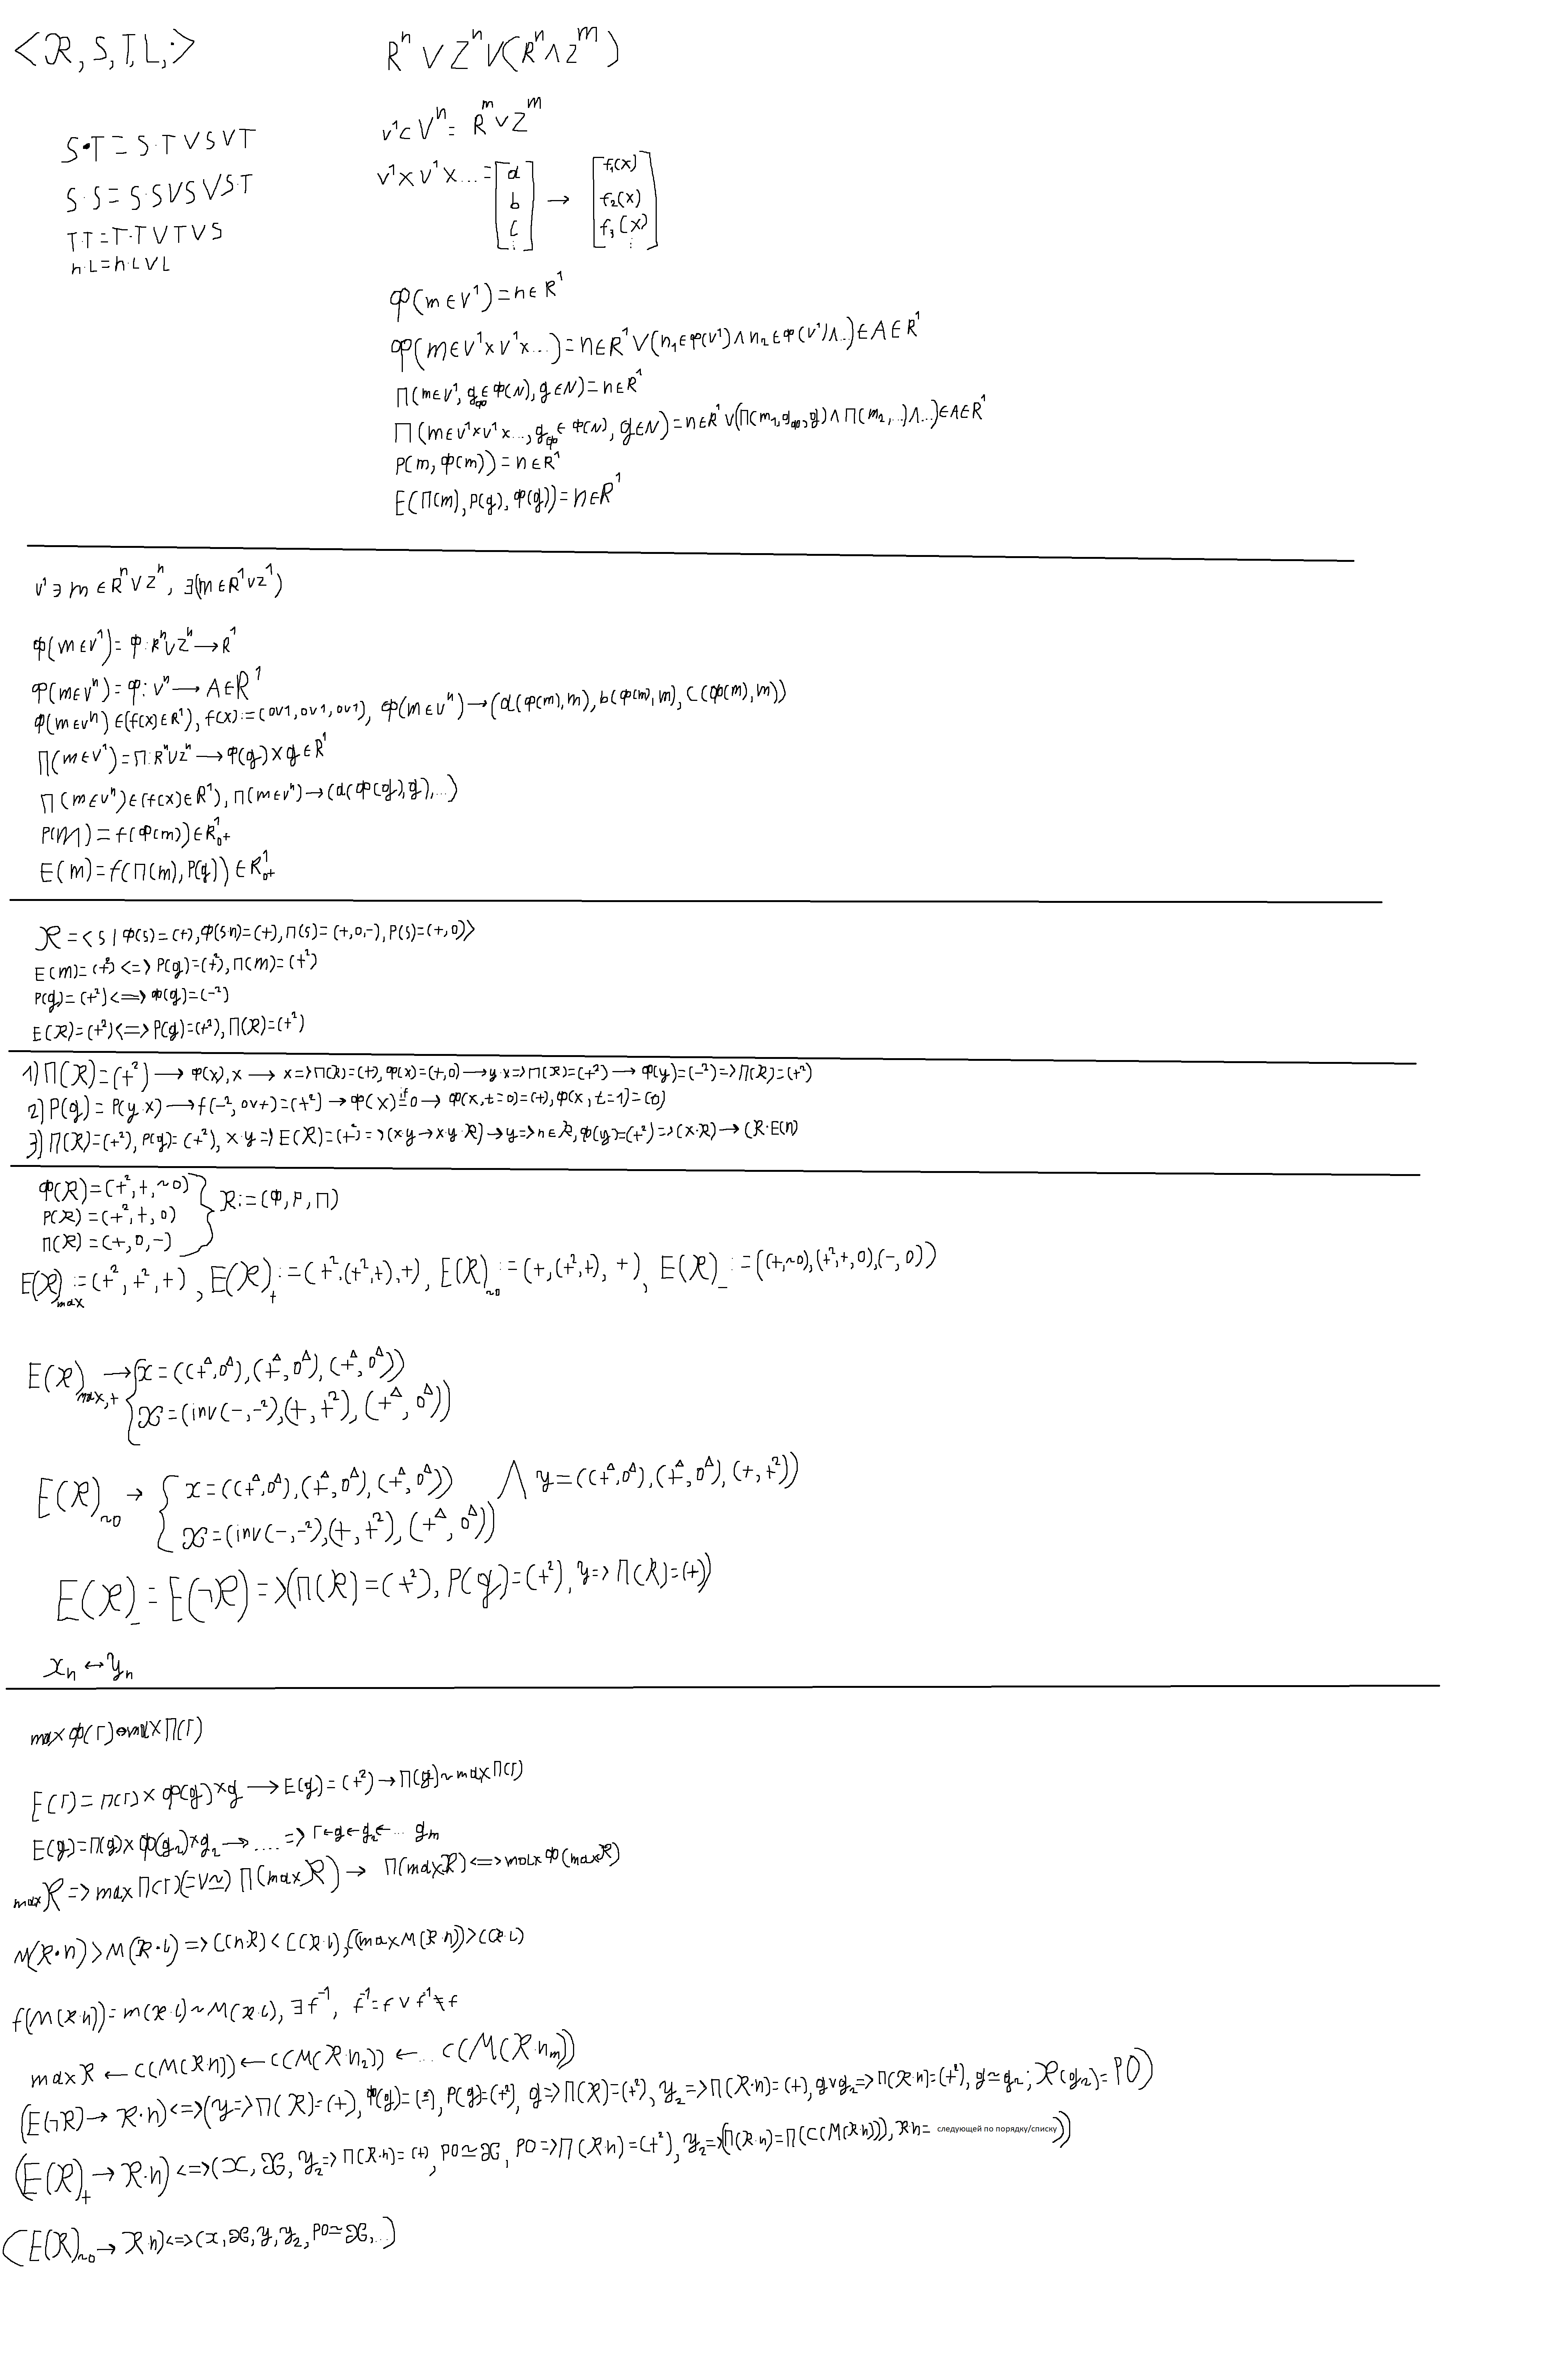 <ℛ, S, T, L, ·>
Rⁿ ∨ Zⁿ ∨ (Rⁿ ∧ Zᵐ)
S·T = S·T ∨ S ∨ T
S·S = S·S ∨ S ∨ S·T
T·T = T·T ∨ T ∨ S
n·L = n·L ∨ L
v¹ ⊂ Vⁿ = Rᵐ ∨ Zᵐ
v¹ × v¹ × ... = [a b c ⋮] → [f₁(x) f₂(x) f₃(x) ⋮]
Ф(m ∈ v¹) = n ∈ R¹
Ф(m ∈ v¹ × v¹ × ...) = n ∈ R¹ ∨ (n₁ ∈ Ф(v¹) ∧ n₂ ∈ Ф(v¹) ∧ ...) ∈ A ∈ R¹
П(m ∈ v¹, g_Ф ∈ Ф(N), g ∈ N) = n ∈ R¹
П(m ∈ v¹ × v¹ × ..., g_Ф ∈ Ф(N), g ∈ N) = n ∈ R¹ ∨ (П(m₁, g_Ф, g) ∧ П(m₂, ...) ∧ ...) ∈ A ∈ R¹
P(m, Ф(m)) = n ∈ R¹
E(П(m), P(g), Ф(g)) = n ∈ R¹
v¹ ∋ m ∈ Rⁿ ∨ Zⁿ, ∃(m ∈ R¹ ∨ Z¹)
Ф(m ∈ v¹) = Ф: Rⁿ ∨ Zⁿ → R¹
Ф(m ∈ vⁿ) = Ф: vⁿ → A ∈ R¹
Ф(m ∈ vⁿ) ∈ (f(x) ∈ R¹), f(x) := (0∨1, 0∨1, 0∨1), Ф(m ∈ vⁿ) → (a(Ф(m), m), b(Ф(m), m), c(Ф(m), m))
П(m ∈ v¹) = П: Rⁿ ∨ Zⁿ → Ф(g) × g ∈ R¹
П(m ∈ vⁿ) ∈ (f(x) ∈ R¹), П(m ∈ vⁿ) → (a(Ф(g), g), ...)
P(m) = f(Ф(m)) ∈ R¹₀₊
E(m) = f(П(m), P(g)) ∈ R¹₀₊
ℛ = <S | Ф(S) = (+), Ф(Sn) = (+), П(S) = (+, 0, -), P(S) = (+, 0)>
E(m) = (+²) <=> P(g) = (+²), П(m) = (+²)
P(g) = (+²) <=> Ф(g) = (-²)
E(ℛ) = (+²) <=> P(g) = (+²), П(ℛ) = (+²)
1) П(ℛ) = (+²) → Ф(x), x → x => П(ℛ) = (+), Ф(x) = (+, 0) → y·x => П(ℛ) = (+²) → Ф(y) = (-²) => П(ℛ) = (+²)
2) P(g) = P(y·x) → f(-², 0∨+) = (+²) → Ф(x) if= 0 → Ф(x, t=0) = (+), Ф(x, t=1) = (0)
3) П(ℛ) = (+²), P(g) = (+²), x·y => E(ℛ) = (+²) => (x·y → x·y·ℛ) → y => n ∈ ℛ, Ф(y) = (+²) => (x·ℛ) → (ℛ·E(n)
Ф(ℛ) = (+², +, ~0)
P(ℛ) = (+², +, 0) } ℛ := (Ф, P, П)
П(ℛ) = (+, 0, -)
E(ℛ)max := (+², +², +), E(ℛ)₊ := (+², (+², +), +), E(ℛ)~₀ := (+, (+², +), +), E(ℛ)₋ := ((+, ~0), (+², +, 0), (-, 0))
E(ℛ)max,+ → { x = ((+^Δ, 0^Δ), (+^Δ, 0^Δ), (+^Δ, 0^Δ))
Ж = (inv(-, -²), (+, +²), (+^Δ, 0^Δ))
E(ℛ)~₀ → { x = ((+^Δ, 0^Δ), (+^Δ, 0^Δ), (+^Δ, 0^Δ)) ∧ y = ((+^Δ, 0^Δ), (+^Δ, 0^Δ), (+, +²))
Ж = (inv(-, -²), (+, +²), (+^Δ, 0^Δ))
E(ℛ)₋ = E(¬ℛ) => (П(ℛ) = (+²), P(g) = (+²), y => П(ℛ) = (+))
xₙ ↔ yₙ
max Ф(Г) max П(Г)
E(Г) = П(Г) × Ф(g) × g → E(g) = (+²) → П(g) ~ max П(Г)
E(g) = П(g) × Ф(g₂) × g₂ → .... => Г ← g ← g₂ ← ... gₘ
maxℛ => max П(Г) (= ∨ ≃) П(maxℛ) → П(maxℛ) <=> max Ф(maxℛ)
M(ℛ·n) > M(ℛ·L) => C(nℛ) < C(ℛ·L), C(max M(ℛ·n)) > C(ℛ·L)
f(M(ℛ·n)) = m(ℛ·L) ~ M(ℛ·L), ∃f⁻¹, f⁻¹ = f ∨ f⁻¹ ≠ f
maxℛ ← C(M(ℛ·n)) ← C(M(ℛ·n₂)) ← ... C(M(ℛ·nₘ))
(E(¬ℛ) → ℛ·n) <=> (y => П(ℛ) = (+), P(g) = (+²), g => П(ℛ) = (+²), y₂ => П(ℛ·n) = (+), g∨g₂ => П(ℛ·n) = (+²), g ≃ g₂; ℛ(g₂) = PO)
(E(ℛ)₊ → ℛ·n) <=> (x, Ж, y₂ => П(ℛ·n) = (+), PO ≃ Ж, PO => П(ℛ·n) = (+²), y₂ => (П(ℛ·n) = П(C(M(ℛ·n))), ℛ·n = следующей по порядку/списку))
(E(ℛ)~₀ → ℛ·n) <=> (x, Ж, y, y₂, PO ≃ Ж, ...)